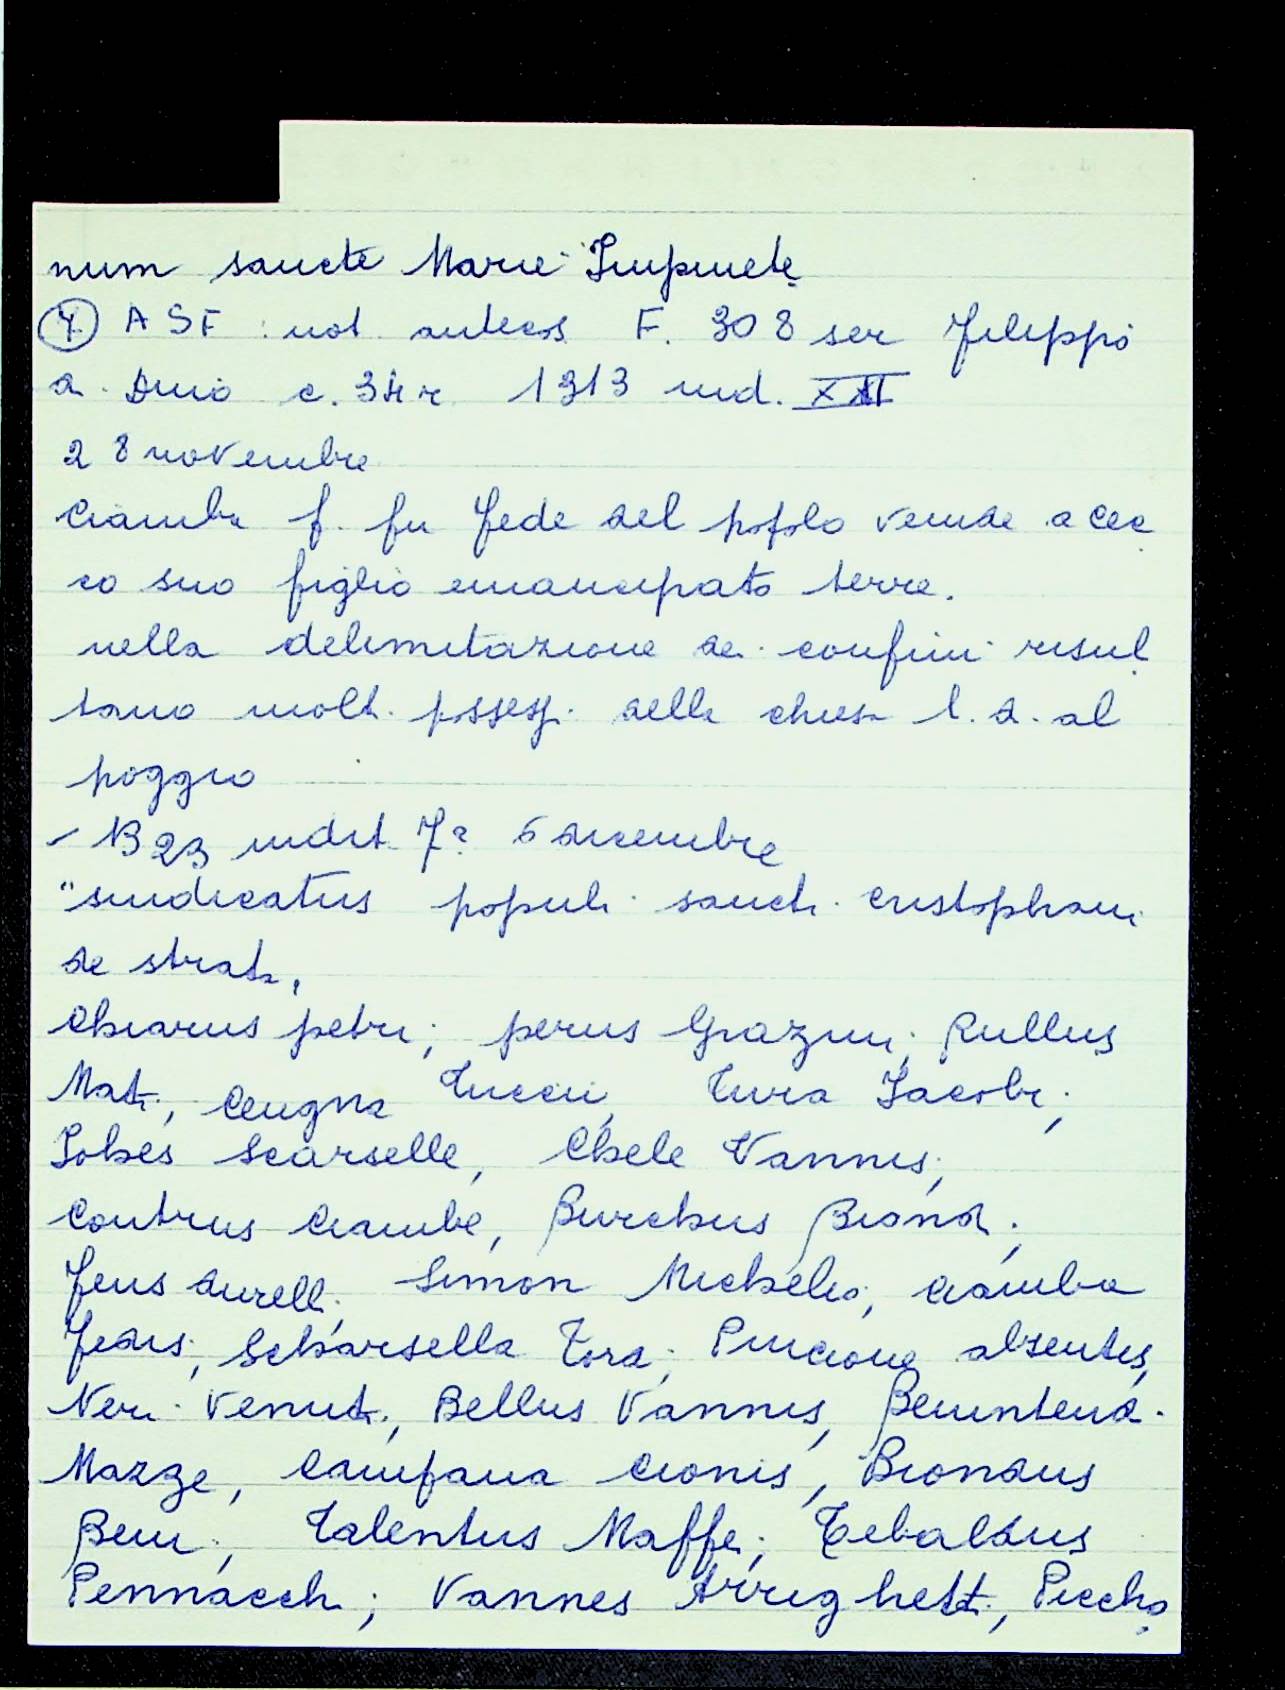 num sancte Marie Impinete
④ ASF: not. antecos. F. 308 ser Filippo
a. Dino c. 34r 1313 ind. XII
28 novembre
Ciamba f. fu Fede del popolo vende a Cec
co suo figlio emancipato terre.
nella delimitazione dei confini risul
tano molti possess. della chiesa l. d. al
poggio
- 1323 indit. 7ª 6 dicembre
"sindicatus populi sancti Cristophani
de strata,
Chiarus petri; perus Grazini; Rullus
Mati, Cengna Tuccii, Tura Jacobi;
Lobes Scarselle, Chele Vannis;
Contrus Ciambe, Burchus Biondi;
Feus Aurelli; Simon Michelis; Ciamba
Fedis; Scharsella Tora; Pincione absentes,
Neri Venuti, Bellus Vannis, Benintendi
Mazze, Campana Cionis, Biondus
Beni; Talentus Maffei; Tebaldus
Pennacchi; Vannes Arrighetti, Piccho